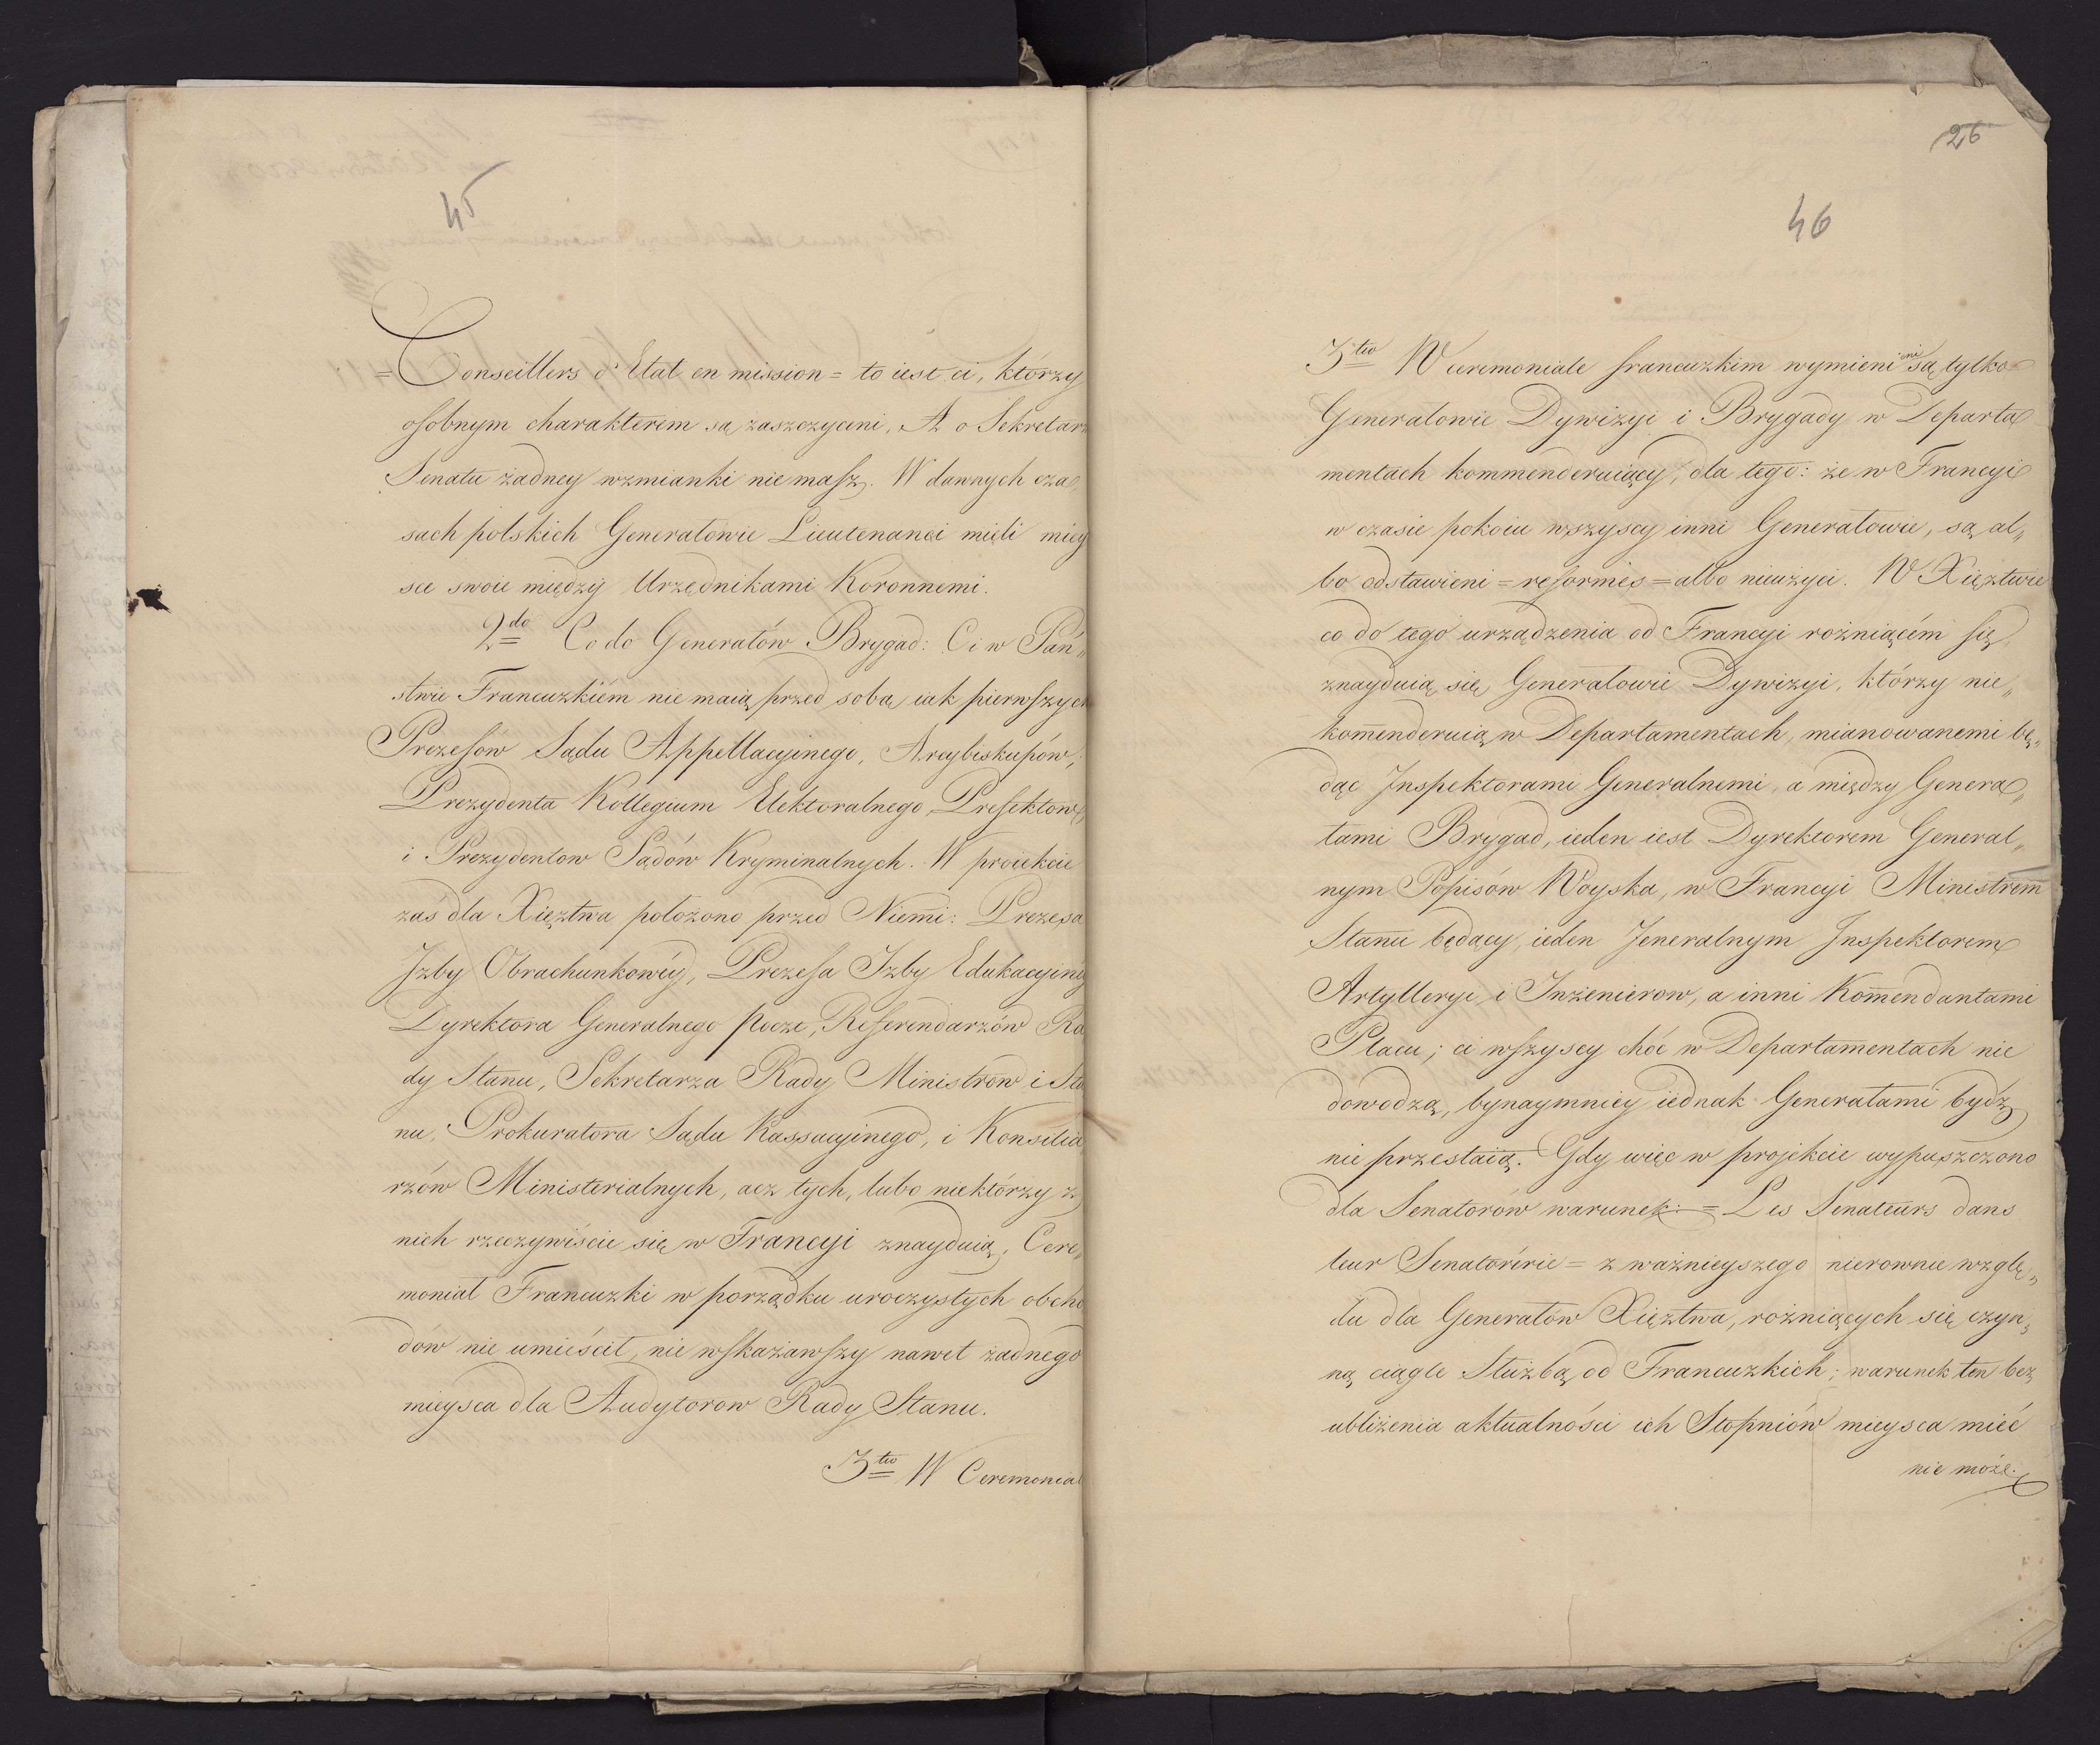 45
= Conseillers d'Etat en mission = to iest ci, którzy
osobnym charakterem są zaszczyceni, A o Sekretarz
Senatu żadney wzmianki nie masz. W dawnych cza„
sach polskich Generałowie Lieutenanci mieli miey
sce swoie między Urzędnikami Koronnemi.
2do Co do Generałów Brygad: Ci w Pań„
stwie Francuzkiém nie maią przed sobą iak pierwszych
Prezesów Sądu Appellacyinego, Arcybiskupów,
Prezydenta Kollegium Elektoralnego Prefektow,
i Prezydentow Sądów Kryminalnych. W proiekcie
zaś dla Xięztwa położono przed Niemi: Prezesa
Izby Obrachunkowéy, Prezesa Izby Edukacyiney
Dyrektora Generalnego Pocze, Referendarzów Ra
dy Stanu, Sekretarza Rady Ministrów i Sta
nu, Prokuratora Sądu Kassacyinego, i Konsilia
rzów Ministerialnych, acz tych, lubo niektórzy z
nich rzeczywiście się w Francyi znayduią, Cere„
moniał Francuzki w porządku uroczystych obcho
dów nie umieścił, nie wskazawszy nawet żadnego
mieysca dla Audytorow Rady Stanu.
3tio W Ceremonial
26
46
3tio W ceremoniale francuzkim wymienieni są tylko
Generałowie Dywizyi i Brygady w Departa
mentach kommenderuiący, dla tego: że w Francyi
w czasie pokoiu wszyscy inni Generałowie, są al„
bo odstawieni = reformés = albo nieużyci. W Xięztwie
co do tego urządzenia od Francyi rożniącém się,
znayduią się Generałowie Dywizyi, którzy nie„
kom̄enderuią w Departamentach, mianowanemi bę„
dąc Inspektorami Generalnemi, a między Genera„
łami Brygad, ieden iest Dyrektorem General„
nym Popisów Woyska, w Francyi Ministrem
Stanu będący, ieden Jeneralnym Inspektorem
Artylleryi i Inżenierow, a inni Kom̄endantami
Placu; ci wszyscy chóć w Departamentach nie
dowodzą, bynaymniey iednak Generałami bydź
nie przestaią. Gdy więc w projekcie wypuszczono
dla Senatorów warunek: = Les Senateurs dans
leur Senatorérie = z ważnieyszego nierownie wzglę„
du dla Generałów Xięztwa, rożniących się czyn„
ną ciągle Służbą od Francuzkich; warunek ten bez
ubliżenia aktualności ich Stopniów mieysca mieć
nie może.